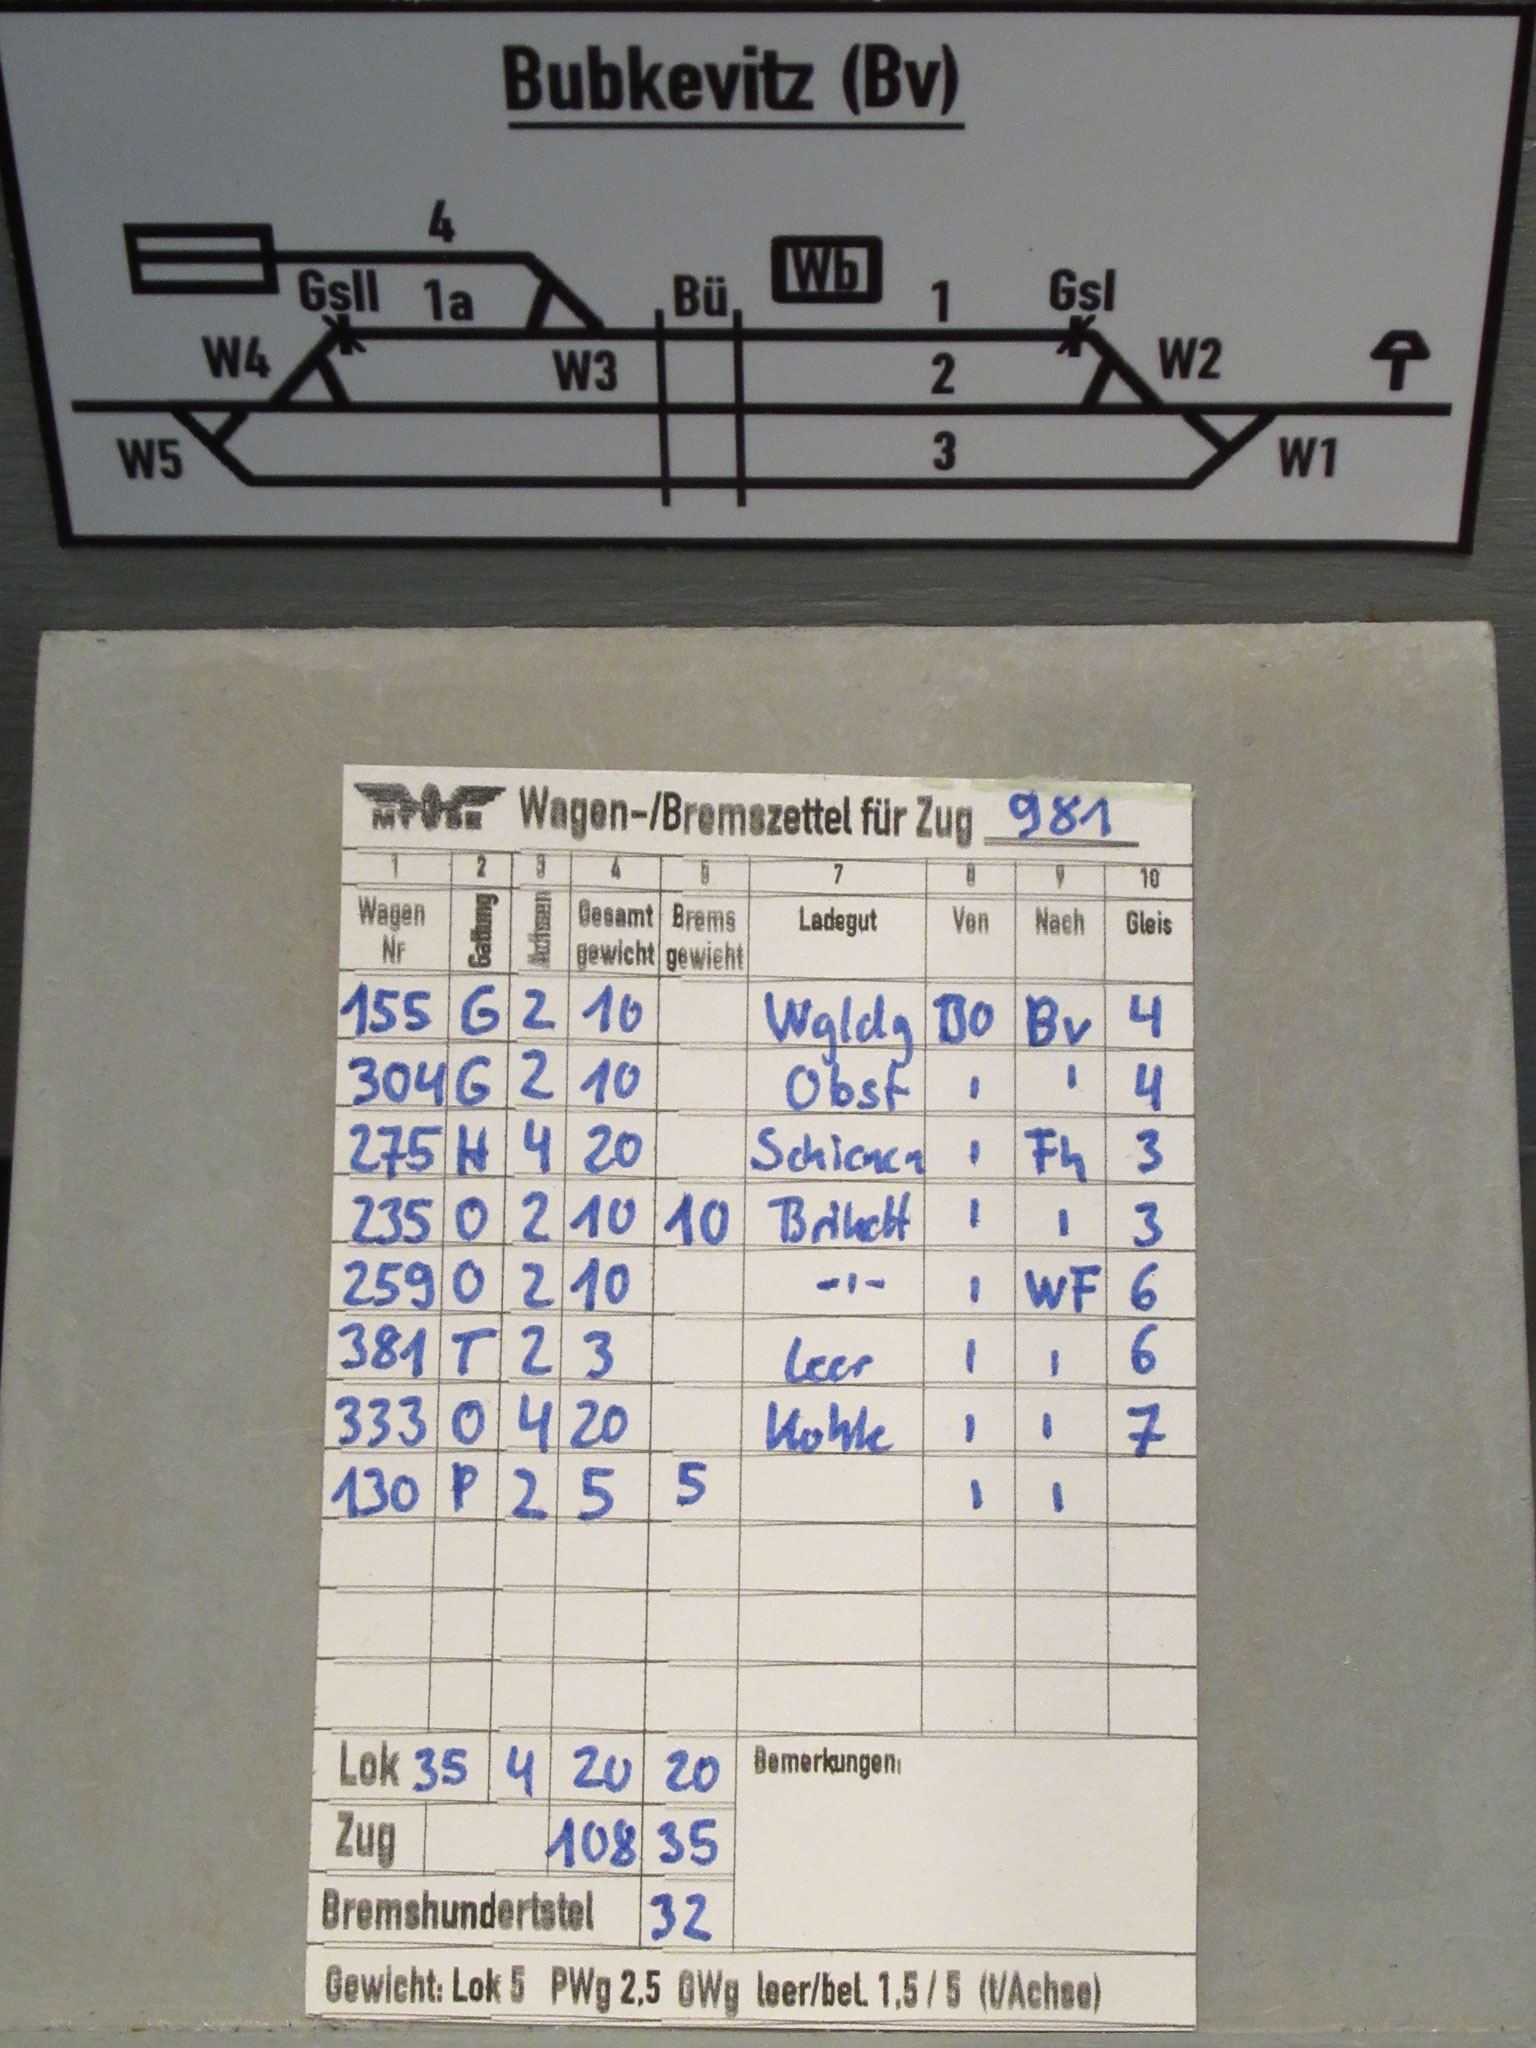 Bubkevitz (Bv)
4
GsII 1a Bü Wb 1 GsI
W4 W3 2 W2
W5 3 W1
Wagen-/Bremszettel für Zug 981
1 2 3 4 5 7 8 9 10
Wagen Nr Gattung Achsen Gesamt gewicht Brems gewicht Ladegut Von Nach Gleis
155 G 2 10 Wgldg BO Bv 4
304 G 2 10 Obst ' ' 4
275 H 4 20 Schienen ' Fh 3
235 O 2 10 10 Brikett ' ' 3
259 O 2 10 -'- ' WF 6
381 T 2 3 Leer ' ' 6
333 O 4 20 Kohle ' ' 7
130 P 2 5 5 ' '
Lok 35 4 20 20 Bemerkungen:
Zug 108 35
Bremshundertstel 32
Gewicht: Lok 5 PWg 2,5 GWg leer/bel. 1,5 / 5 (t/Achse)